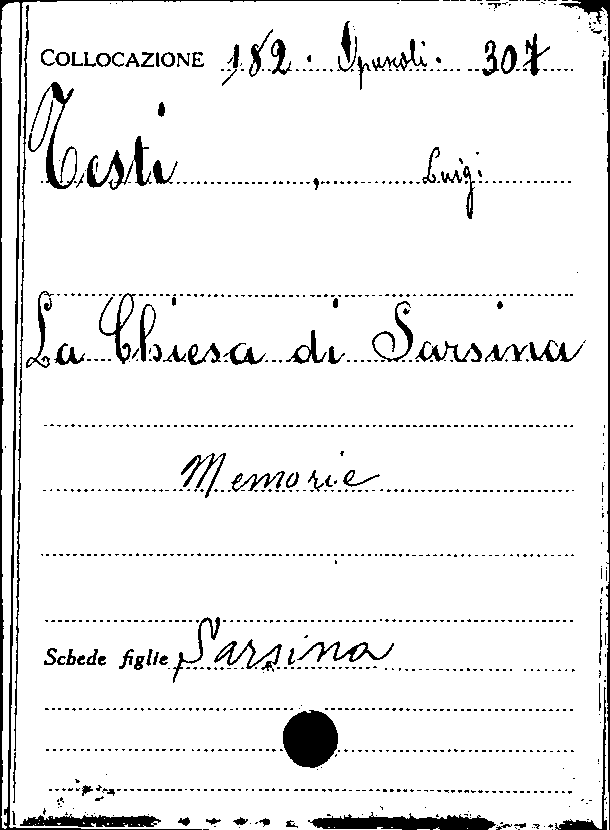 COLLOCAZIONE 182. Opuscoli. 307
Testi, Luigi
La Chiesa di Sarsina
Memorie
Schede figlie Sarsina